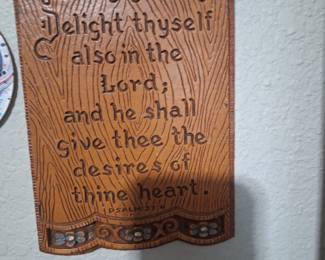 Delight thyself
also in the
Lord;
and he shall
give thee the
desires of
thine heart.